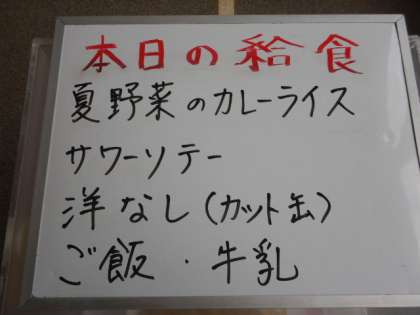 本日の給食
夏野菜のカレーライス
サワーソテー
洋なし(カット缶)
ご飯・牛乳